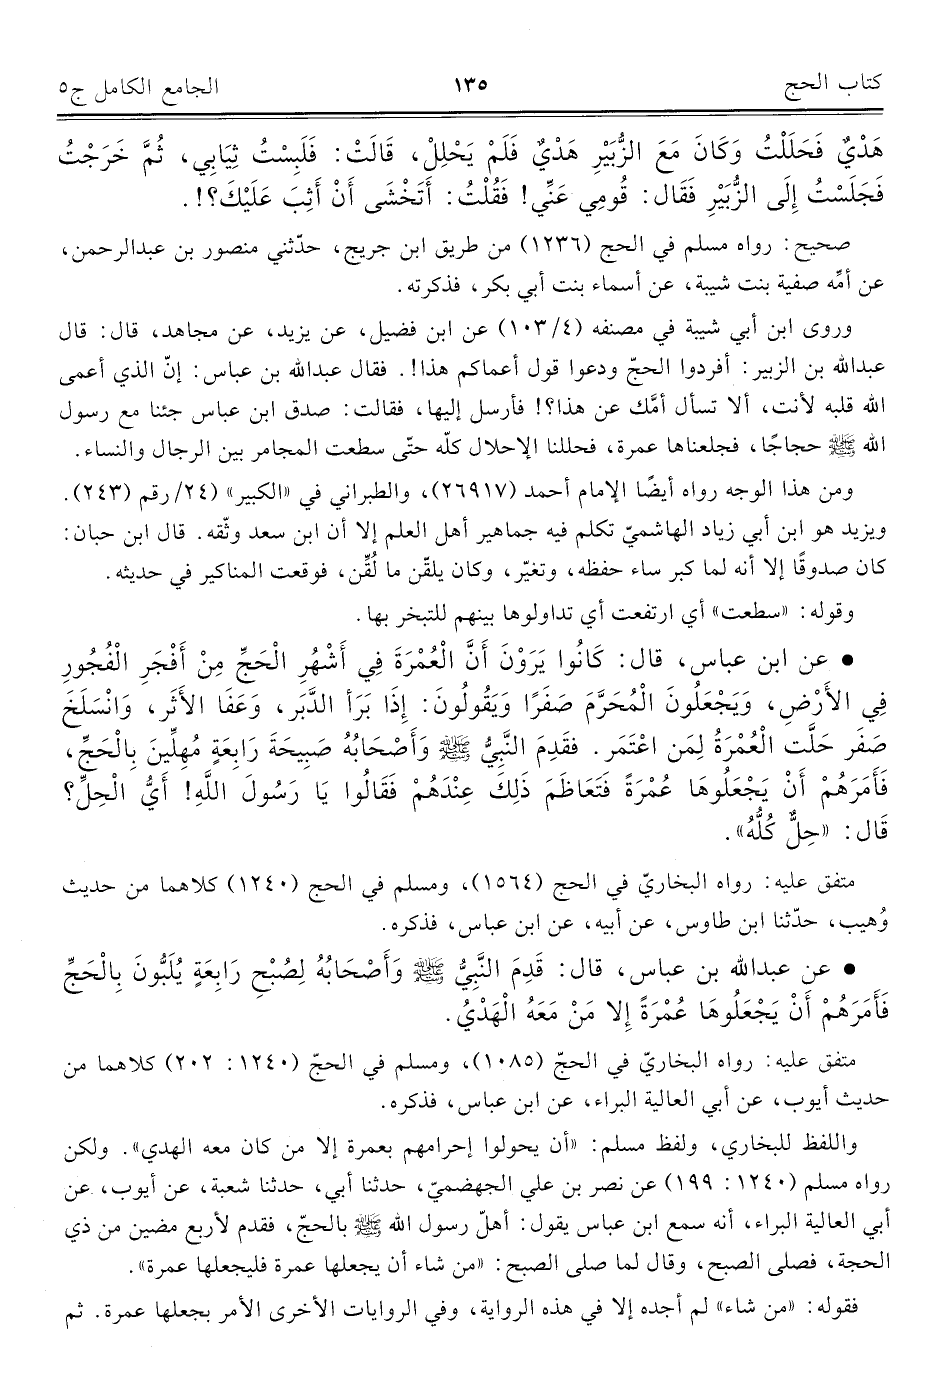 كتاب الحج ١٣٥ الجامع الكامل ج٥
هَدْيٌ فَحَلَلْتُ وَكَانَ مَعَ الزُّبَيْرِ هَدْيٌ فَلَمْ يَحْلِلْ، قَالَتْ: فَلَبِسْتُ ثِيَابِي، ثُمَّ خَرَجْتُ
فَجَلَسْتُ إِلَى الزُّبَيْرِ فَقَالَ: قُومِي عَنِّي! فَقُلْتُ: أَتَخْشَى أَنْ أَثِبَ عَلَيْكَ؟!.
صحيح: رواه مسلم في الحج (١٢٣٦) من طريق ابن جريج، حدّثني منصور بن عبدالرحمن،
عن أمّه صفية بنت شيبة، عن أسماء بنت أبي بكر، فذكرته.
وروى ابن أبي شيبة في مصنفه (٤/١٠٣) عن ابن فضيل، عن يزيد، عن مجاهد، قال: قال
عبدالله بن الزبير: أفردوا الحجّ ودعوا قول أعماكم هذا!. فقال عبدالله بن عباس: إنّ الذي أعمى
الله قلبه لأنت، ألا تسأل أمّك عن هذا؟! فأرسل إليها، فقالت: صدق ابن عباس جئنا مع رسول
الله ﷺ حجاجًا، فجلعناها عمرة، فحللنا الإحلال كلّه حتّى سطعت المجامر بين الرجال والنساء.
ومن هذا الوجه رواه أيضًا الإمام أحمد (٢٦٩١٧)، والطبراني في «الكبير» (٢٤/رقم (٢٤٣).
ويزيد هو ابن أبي زياد الهاشميّ تكلم فيه جماهير أهل العلم إلا أن ابن سعد وثّقه. قال ابن حبان:
كان صدوقًا إلا أنه لما كبر ساء حفظه، وتغيّر، وكان يلقّن ما لُقِّن، فوقعت المناكير في حديثه.
وقوله: «سطعت» أي ارتفعت أي تداولوها بينهم للتبخر بها.
• عن ابن عباس، قال: كَانُوا يَرَوْنَ أَنَّ الْعُمْرَةَ فِي أَشْهُرِ الْحَجِّ مِنْ أَفْجَرِ الْفُجُورِ
فِي الأَرْضِ، وَيَجْعَلُونَ الْمُحَرَّمَ صَفَرًا وَيَقُولُونَ: إِذَا بَرَأَ الدَّبَر، وَعَفَا الأَثَر، وَانْسَلَخَ
صَفَر حَلَّت الْعُمْرَةُ لِمَن اعْتَمَر. فقَدِمَ النَّبِيُّ ﷺ وَأَصْحَابُهُ صَبِيحَةَ رَابِعَةٍ مُهِلِّينَ بِالْحَجِّ،
فَأَمَرَهُمْ أَنْ يَجْعَلُوهَا عُمْرَةً فَتَعَاظَمَ ذَلِكَ عِنْدَهُمْ فَقَالُوا يَا رَسُولَ اللَّهِ! أَيُّ الْحِلِّ؟
قَال: «حِلٌّ كُلُّهُ».
متفق عليه: رواه البخاريّ في الحج (١٥٦٤)، ومسلم في الحج (١٢٤٠) كلاهما من حديث
وُهيب، حدّثنا ابن طاوس، عن أبيه، عن ابن عباس، فذكره.
• عن عبدالله بن عباس، قال: قَدِمَ النَّبِيُّ ﷺ وَأَصْحَابُهُ لِصُبْحِ رَابِعَةٍ يُلَبُّونَ بِالْحَجِّ
فَأَمَرَهُمْ أَنْ يَجْعَلُوهَا عُمْرَةً إِلا مَنْ مَعَهُ الْهَدْيُ.
متفق عليه: رواه البخاريّ في الحجّ (١٠٨٥)، ومسلم في الحجّ (١٢٤٠: ٢٠٢) كلاهما من
حديث أيوب، عن أبي العالية البراء، عن ابن عباس، فذكره.
واللفظ للبخاري، ولفظ مسلم: «أن يحولوا إحرامهم بعمرة إلا من كان معه الهدي». ولكن
رواه مسلم (١٢٤٠: ١٩٩) عن نصر بن علي الجهضميّ، حدثنا أبي، حدثنا شعبة، عن أيوب، عن
أبي العالية البراء، أنه سمع ابن عباس يقول: أهلّ رسول الله ﷺ بالحجّ، فقدم لأربع مضين من ذي
الحجة، فصلى الصبح، وقال لما صلى الصبح: «من شاء أن يجعلها عمرة فليجعلها عمرة».
فقوله: «من شاء» لم أجده إلا في هذه الرواية، وفي الروايات الأخرى الأمر بجعلها عمرة. ثم